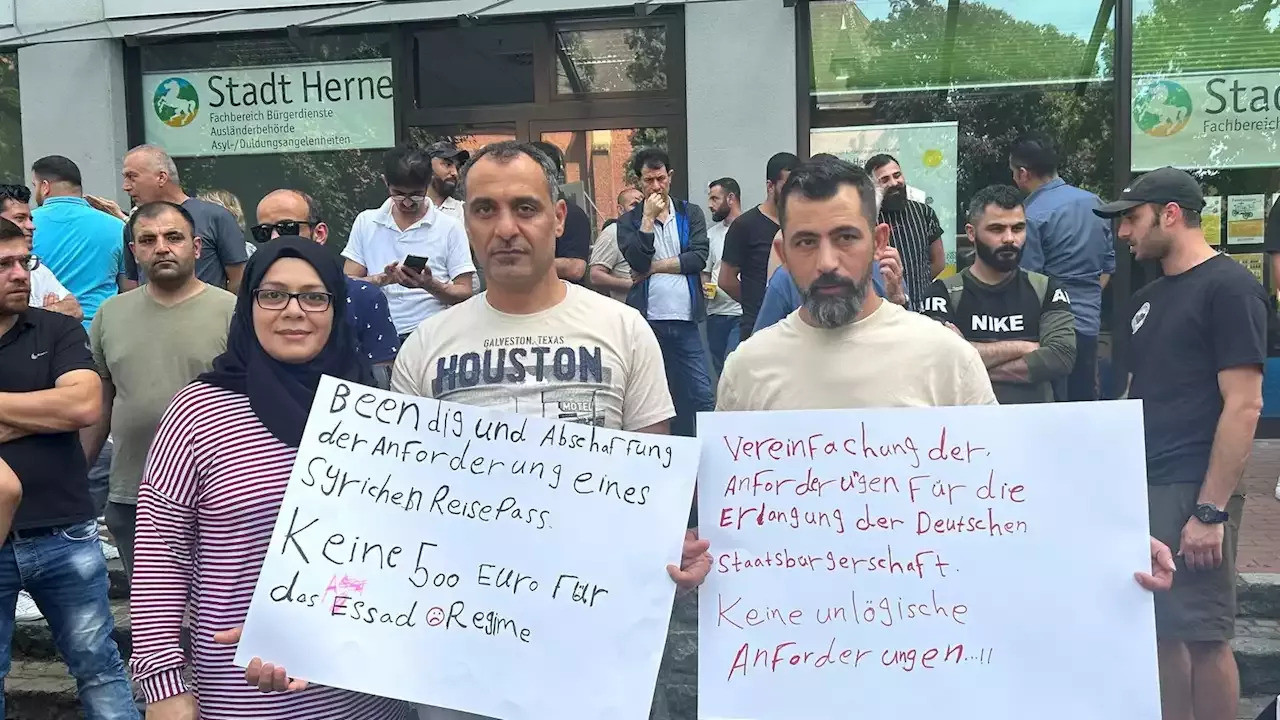 Stadt Herne
Fachbereich Bürgerdienste
Ausländerbehörde
Asyl-/Duldungsangelenheiten
Stad
Fachbereich
GALVESTON, TEXAS
HOUSTON
MOTEL
NIKE
AIR
Beendig und Abschaffung
der Anforderung eines
Syrichen ReisePass.
Keine 500 Euro Für
das Essad Regime
Vereinfachung der.
Anforderungen Für die
Erlangung der Deutschen
Staatsburgerschaft.
Keine unlögische
Anforderungen...!!